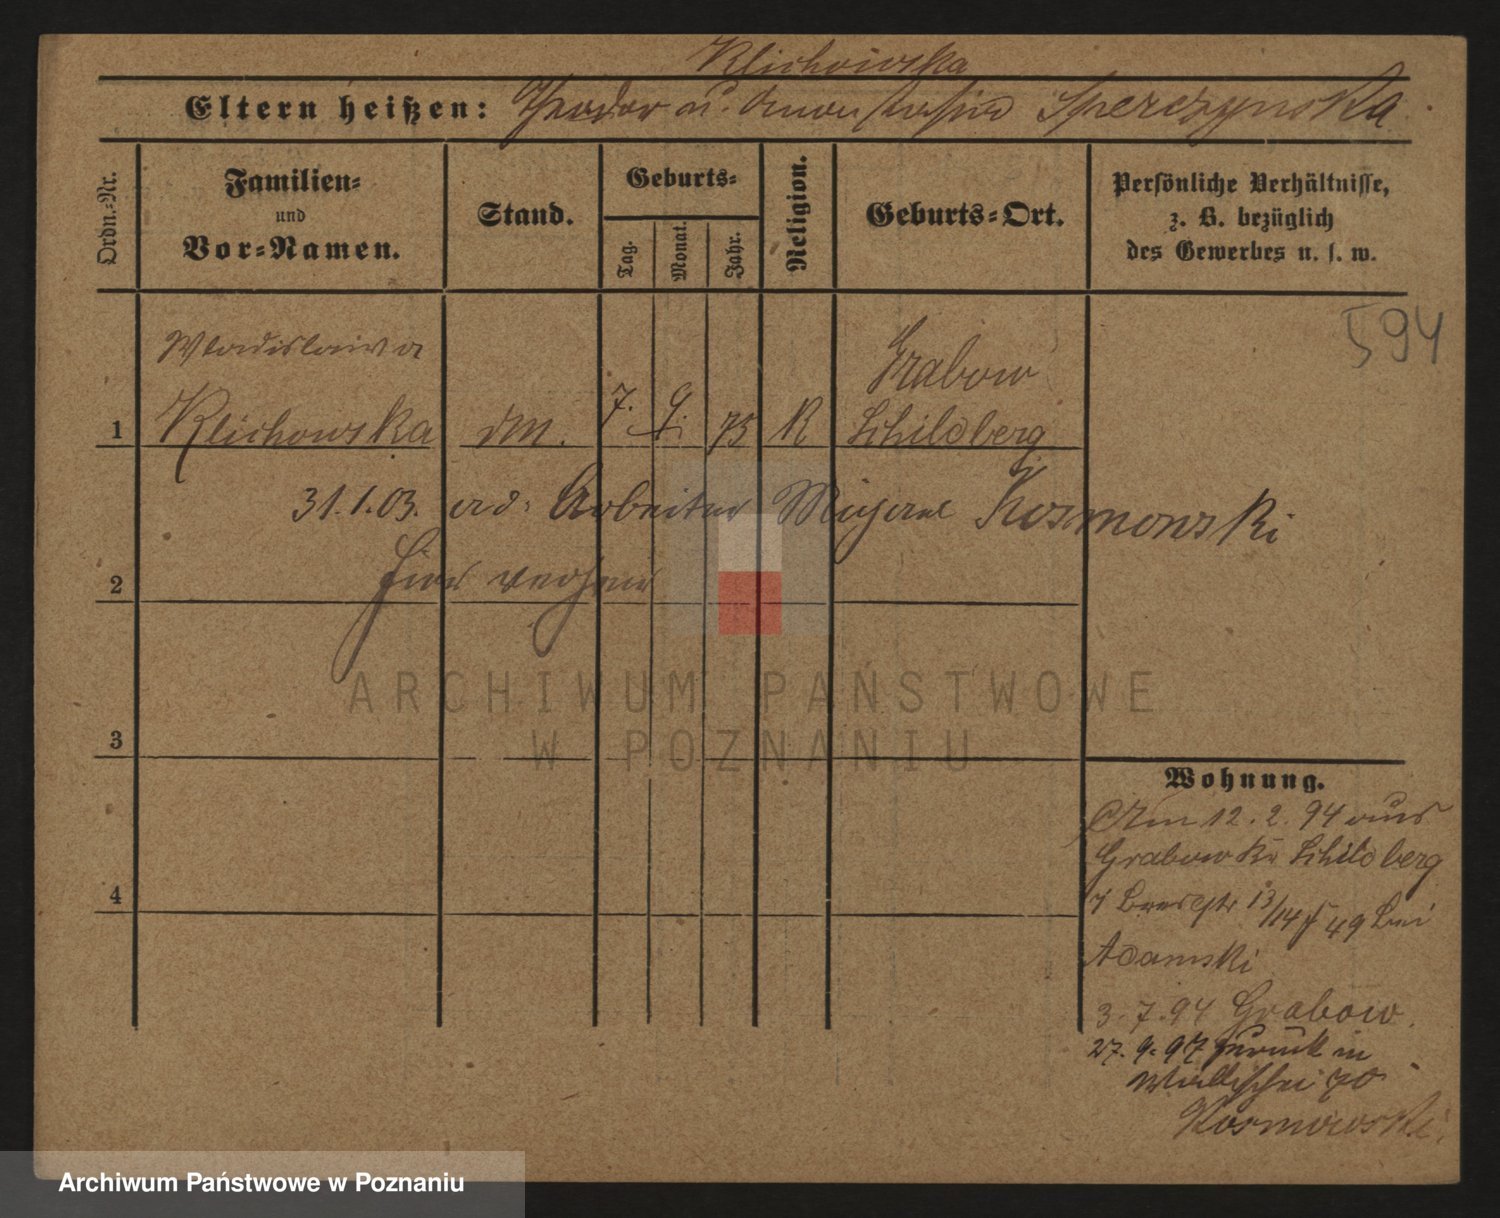 Klichowska
Eltern heißen: Theodor u. Anastasia Sperczynska
Ordn.-Nr.
Familien-
und
Vor-Namen.
Stand.
Geburts-
Tag.
Monat.
Jahr.
Religion.
Geburts-Ort.
Persönliche Verhältnisse,
z. B. bezüglich
des Gewerbes u. s. w.
594
Wladislawa
Grabow
1 Klichowska dM. 7. 9. 75 K Schildberg
31.1.03. ad. Arbeiter Kosmowski
2 hier
ARCHIWUM PAŃSTWOWE
W POZNANIU
3
4
Wohnung.
Am 12.2.94 aus
Grabow Kr. Schildberg
13/14 49 bei
Adamski
3.7.94 Grabow.
27.9.97 zurück in
Wallischei 70
Kosmowski.
Archiwum Państwowe w Poznaniu